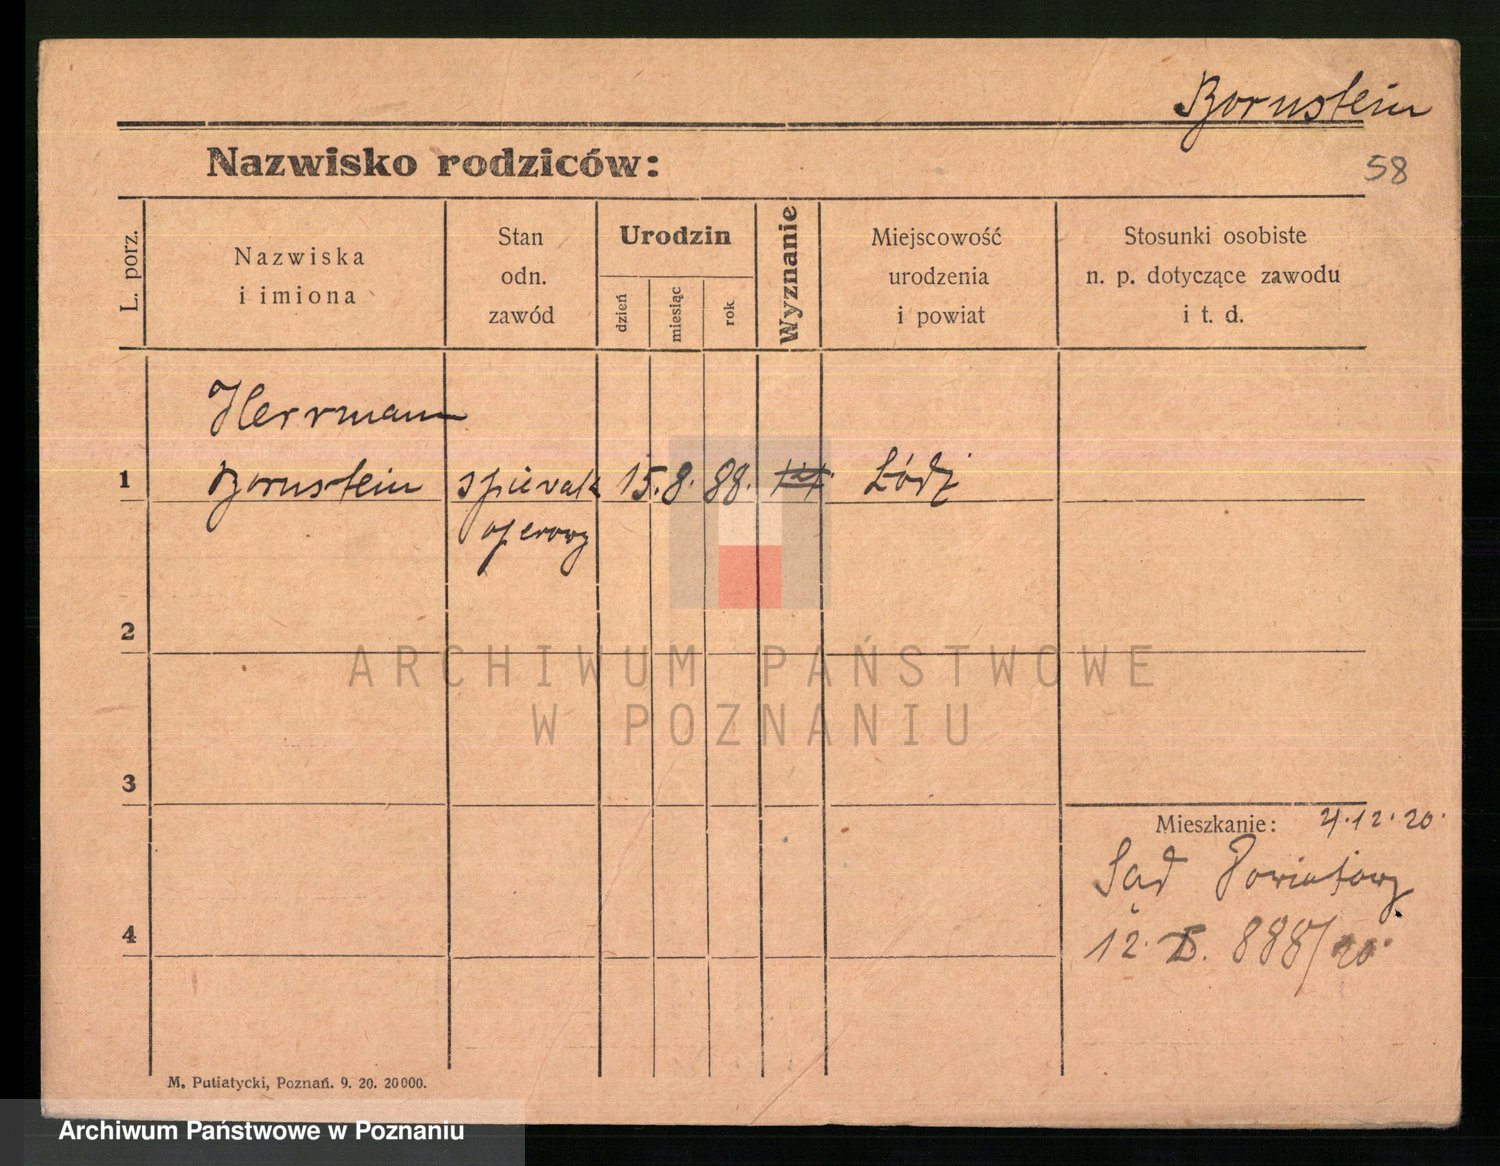 Bornstein
Nazwisko rodziców:
58
L. porz.
Nazwiska
i imiona
Stan
odn.
zawód
Urodzin
dzień
miesiąc
rok
Wyznanie
Miejscowość
urodzenia
i powiat
Stosunki osobiste
n. p. dotyczące zawodu
i t. d.
Herrmann
1 Bornstein spievak 15. 8. 88. Łódź
operowy
2
ARCHIWUM PAŃSTWOWE
W POZNANIU
3
Mieszkanie: 4.12.20.
Sąd Powiatowy
4
12. 888/20.
M. Putiatycki, Poznań. 9. 20. 20000.
Archiwum Państwowe w Poznaniu